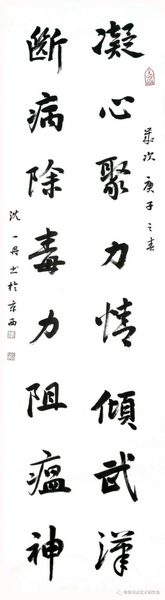 歲次庚子之春
凝心聚力情傾武漢
斷病除毒力阻瘟神
沈一丹书於京西